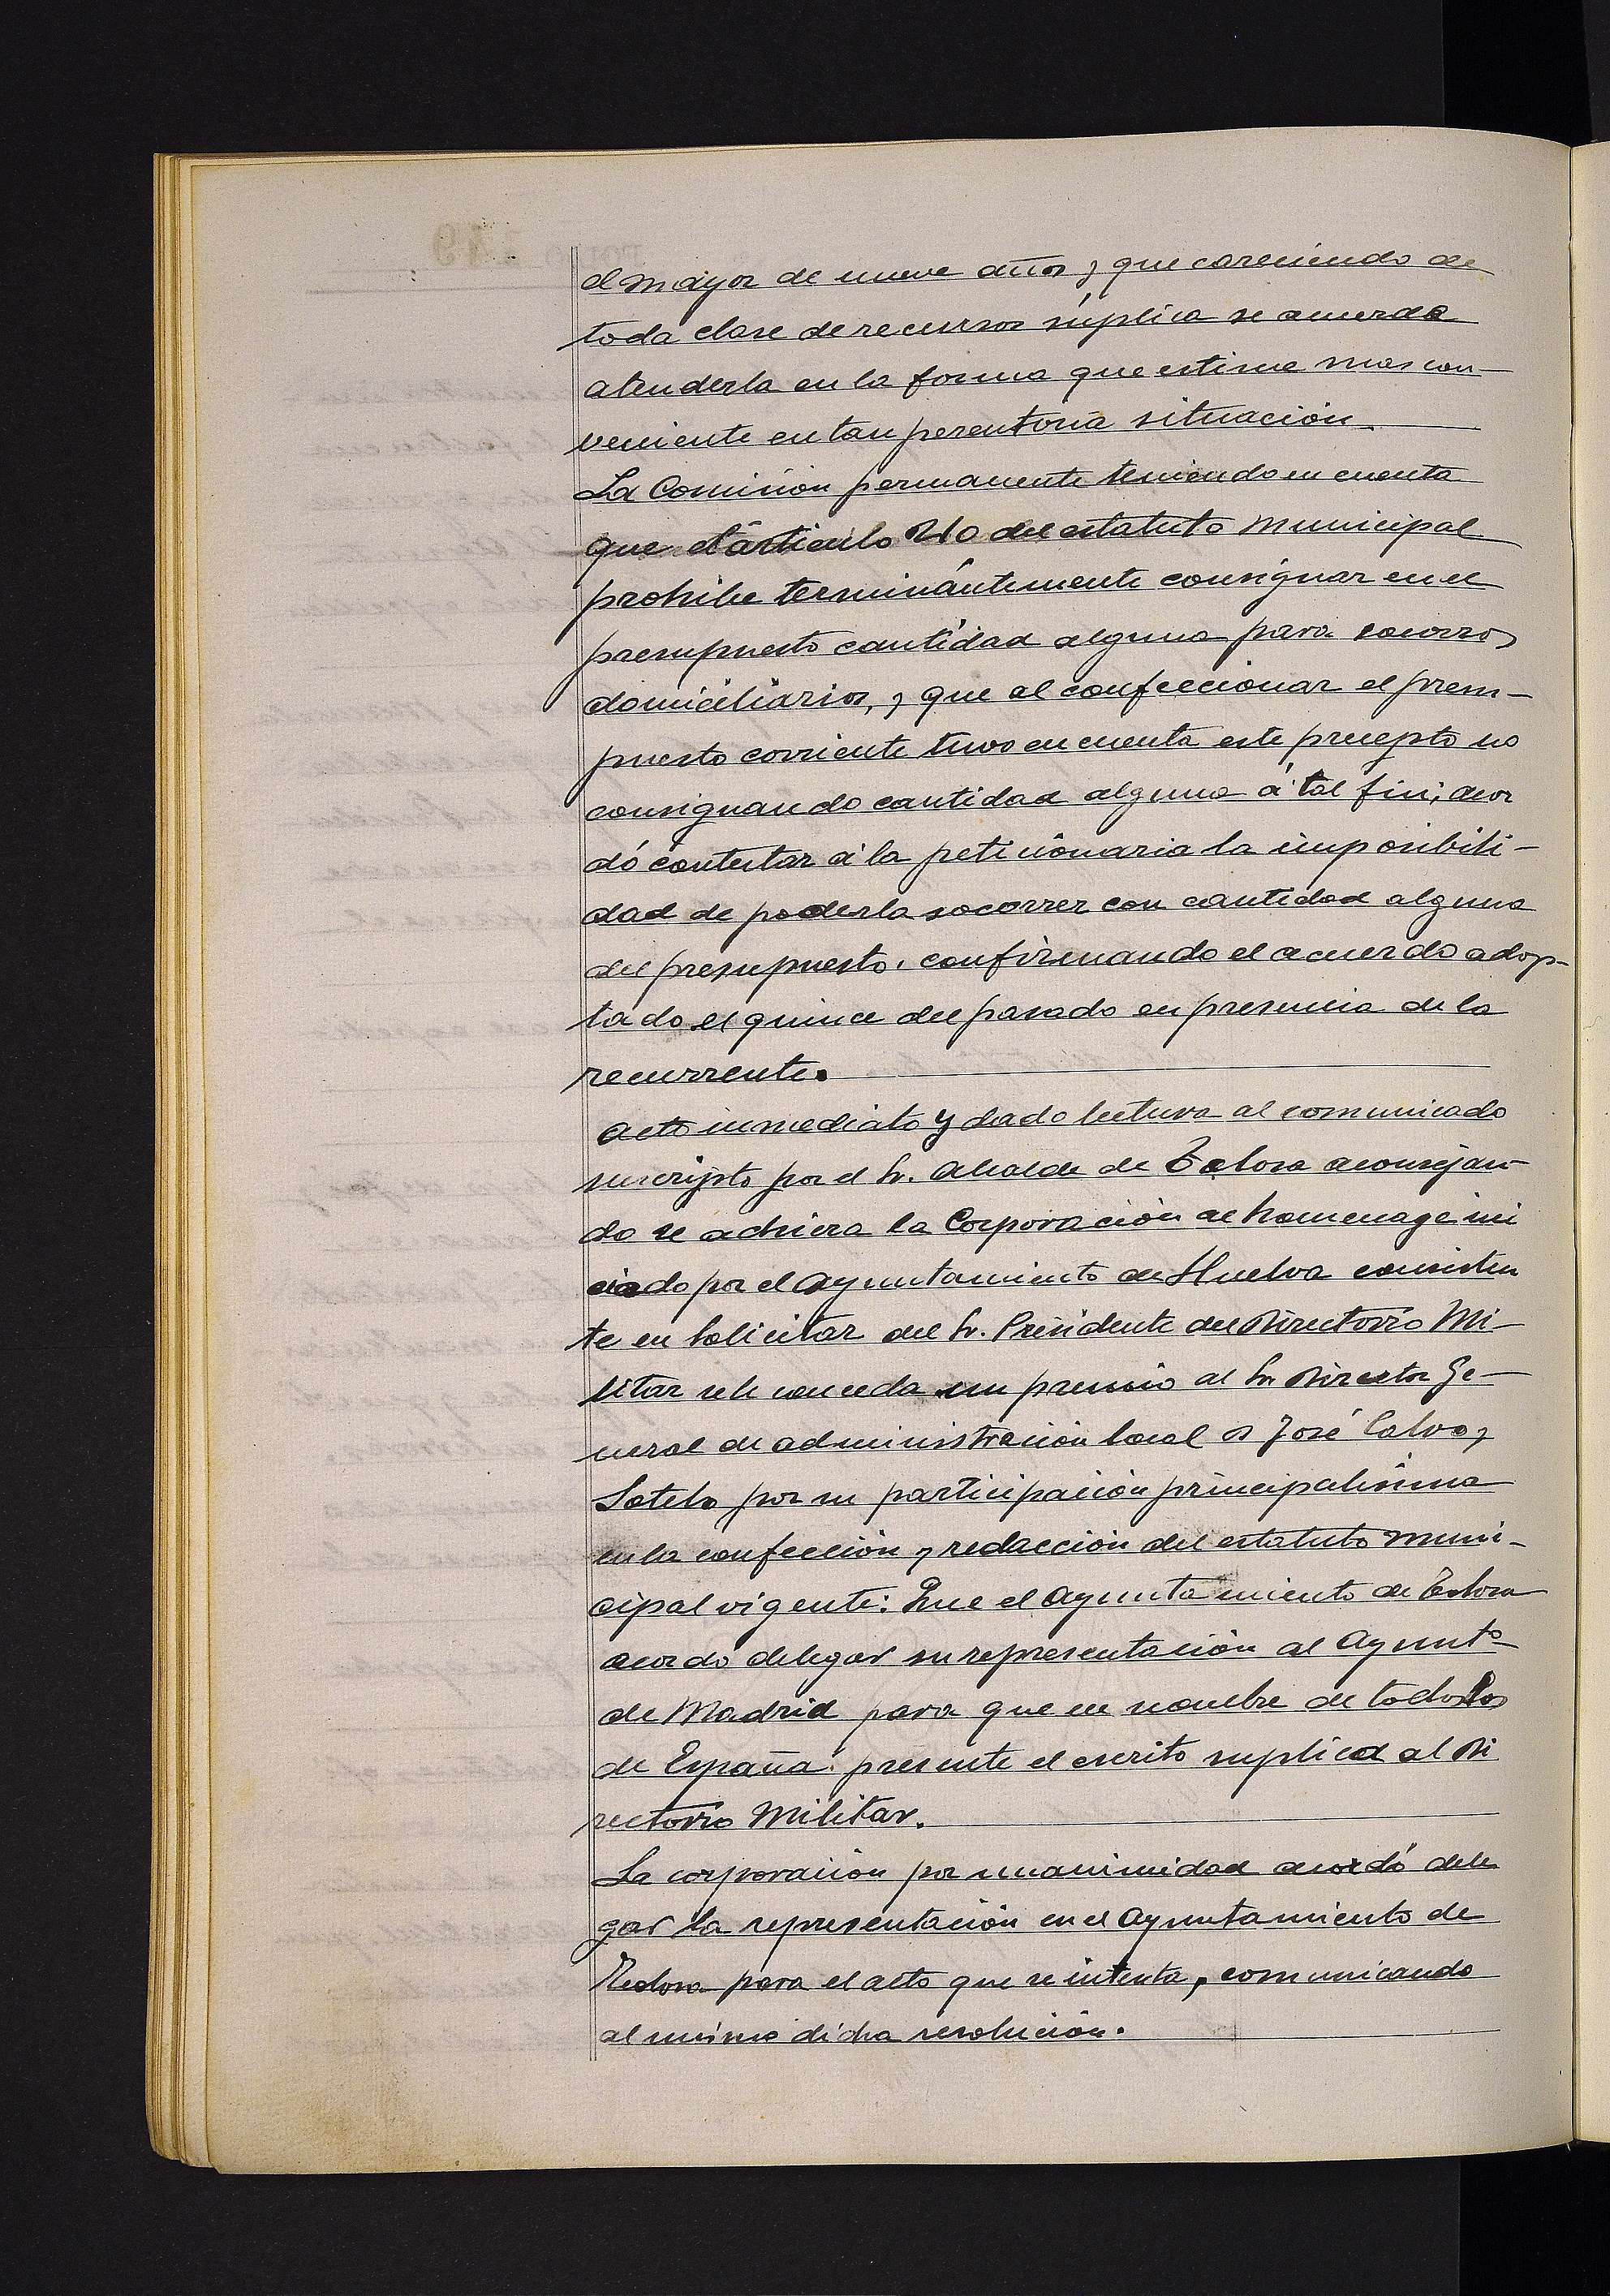 el mayor de nueve años y que careciendo de
toda clase de recursos súplica se acuerda
atenderla en la forma que estime mas con-
veniente en tan perentoria situación.
La Comisión permanente teniendo en cuenta
que el artículo 210 del estatuto municipal
prohibe terminántemente consignar en el
presupuesto cantidad alguna para socorros
domiciliarios, y que al confeccionar el presu-
puesto corriente tuvo en cuenta este precepto no
consignando cantidad alguna á tal fin; acor
dó contestar á la peticionaria la imposibili-
dad de poderla socorrer con cantidad alguna
del presupuesto, confirmando el acuerdo adop-
tado el quince del pasado en presencia de la
recurrente.
Acto inmediato y dado lectura al comunicado
suscripto por el Sr. Alcalde de Tolosa aconsejan-
do se adhiera la Corporación al homenage ini
ciado por el Ayuntamiento de Huelva consisten
te en solicitar del Sr. Presidente del Directorio Mi-
litar se le conceda un premio al Sr Director Ge-
neral de administración local D José Calvo y
Sotelo por su participación principalísima
en la confección y redacción del estatuto muni-
cipal vigente: Que el Ayuntamiento de Tolosa
acordo delegar su representación al Ayuntº
de Madrid para que en nombre de todos los
de España presente el escrito suplica al Di
rectorio Militar.
La corporación por unanimidad acordó dele
gar la representación en el Ayuntamiento de
Tolosa para el acto que se intenta, comunicando
al mismo dicha resolución.